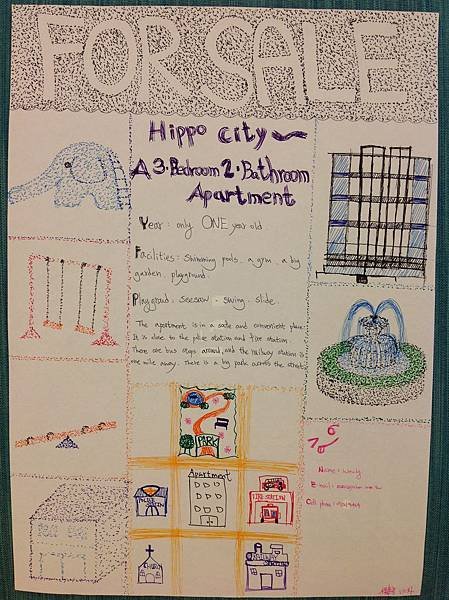 FOR SALE
Hippo City
A 3-Bedroom 2-Bathroom
Apartment
Year: only ONE year old
Facilities: Swimming pools, a gym, a big
garden, playground
Playground: seesaw, swing, slide.
The apartment is in a safe and convenient place.
It is close to the police station and fire station.
There are bus stops around, and the railway station is
one mile away. There is a big park across the street.
PARK
Apartment
POLICE
STATION
FIRE STATION
CHURCH
RAILWAY
STATION
Name: Wendy
E-mail:
Cell phone: